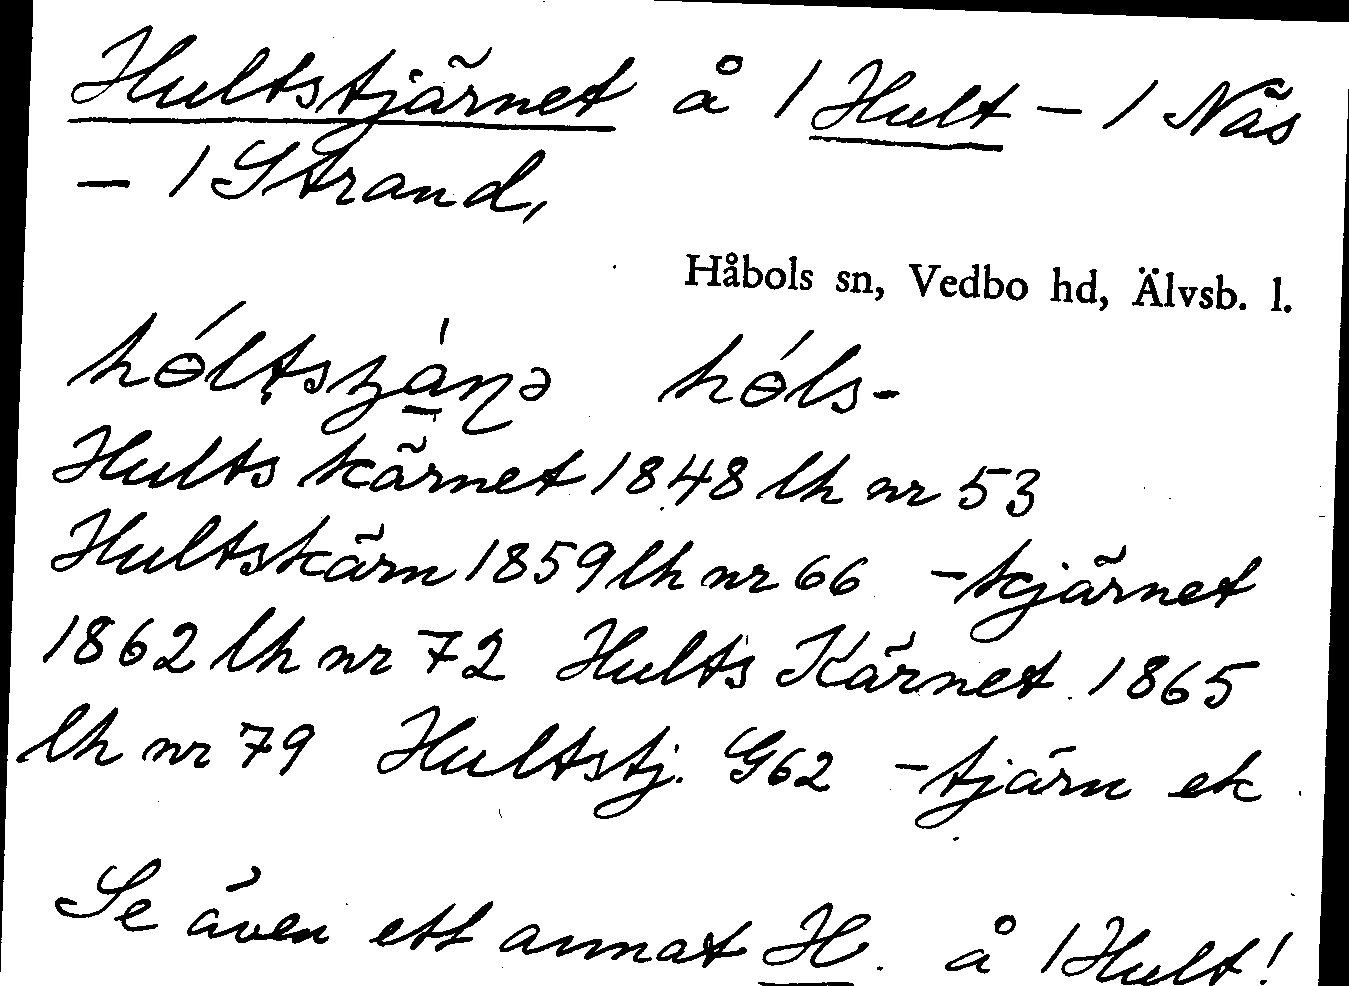 Hultstjärnet å 1 Hult – 1 Näs
– 1 Strand,
Håbols sn, Vedbo hd, Älvsb. l.
hóls-
Hults kärnet 1848 lh nr 53
Hultskärn 1859 lh nr 66 -kjärnet
1862 lh nr 72 Hults Kärnet 1865
lh nr 79 Hultstj. G62 -tjärn ek
Se även ett annat H. å 1 Hult!